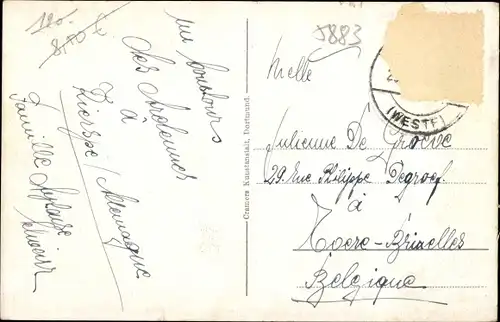 120.-
8,50 €
5883
un bonjour
des Ardennes
à
Kierspe / Allemagne
Famille
Cramers Kunstanstalt, Dortmund.
(WESTF)
Melle
Julienne De Groeve
29. Rue Philippe Degroof
à
Bruxelles
Belgique